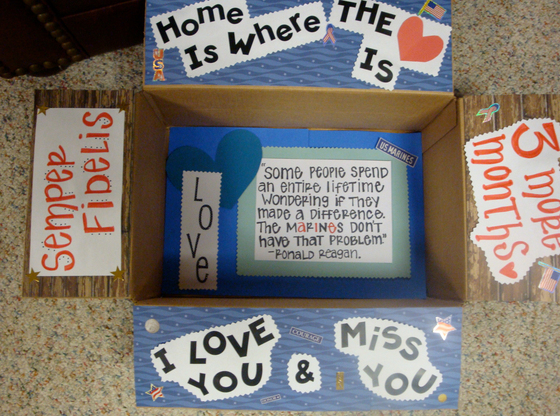 Home
Is Where
THE
IS
USA
Semper
Fidelis
US MARINES
LOVE
"Some people spend
an entire lifetime
wondering if they
made a difference.
The Marines don't
have that problem"
-Ronald Reagan.
3 more
months
COURAGE
I LOVE
YOU
&
MISS
YOU